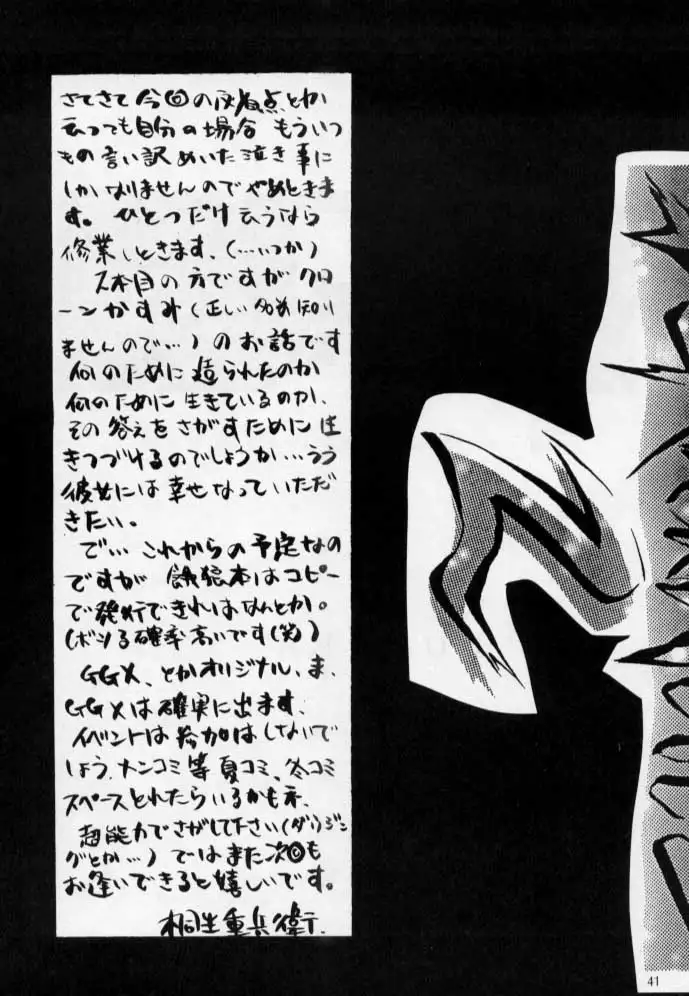 さてさて今回の反省点とか
云っても自分の場合もういつ
もの言い訳めいた泣き事に
しかなりませんのでやめときま
す。ひとつだけ云うなら
修業しときます、(…いつか)
本目の方ですがクロ
ーンかすみ(正しい名前知り
ませんので…)のお話です
何のために造られたのか
何のために生きているのか、
その答えをさがすために生
きつづけるのでしょうか…うう
彼女には幸せなっていただ
きたい。
で…これからの予定なの
ですが餓狼本はコピー
で発行できればなんとか。
(ボツる確率高いです(笑))
GGX、とかオリジナル、ま、
GGXは確実に出ます、
イベントは参加はしないで
しょう、ナンコミ等夏コミ、冬コミ
スペースとれたらいるかもネ、
超能力でさがして下さい(ダウジン
グとか…)ではまた次回も
お逢いできると嬉しいです。
桐生重兵衛.
41